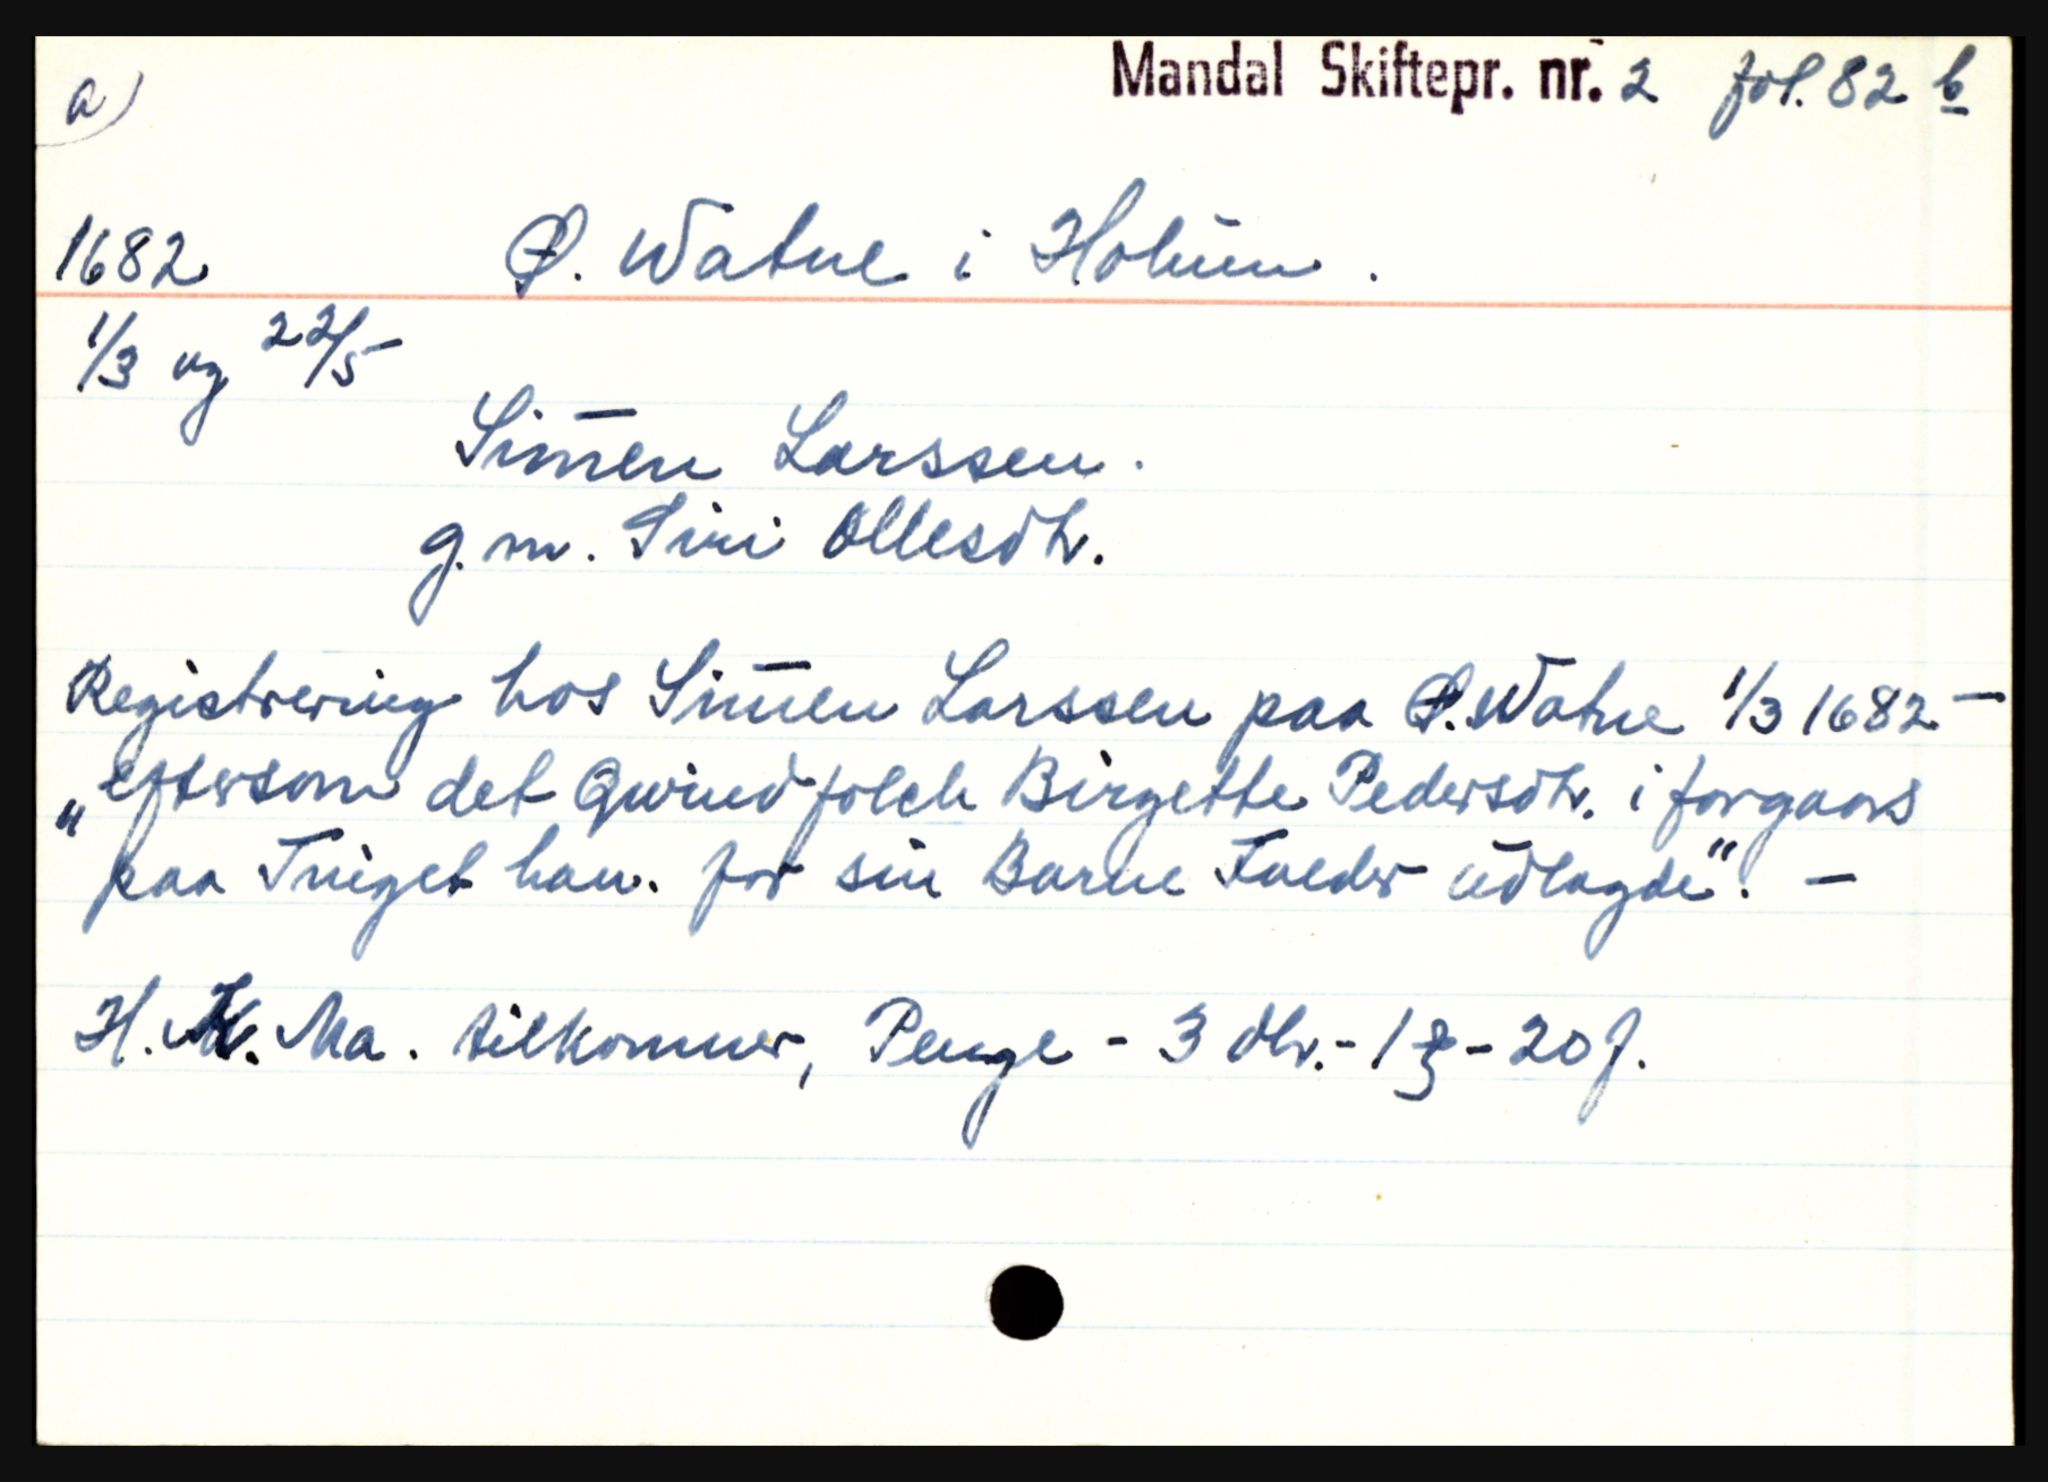 a)
Mandal Skiftepr. nr. 2 fol. 82 b
1682 Ø. Watne i Holum.
1/3 og 22/5
Simen Larssen.
g. m. Siri Ollesdtr.
Registrering hos Simen Larssen paa Ø. Watne 1/3 1682 –
„eftersom det Qwindfolch Birgette Pedersdtr. i forgaars
paa Tinget han. for sin Barne Fader udlagde". –
H. K. Ma. tilkommer, Penge - 3 dlr. - 1 - 20 ſ.